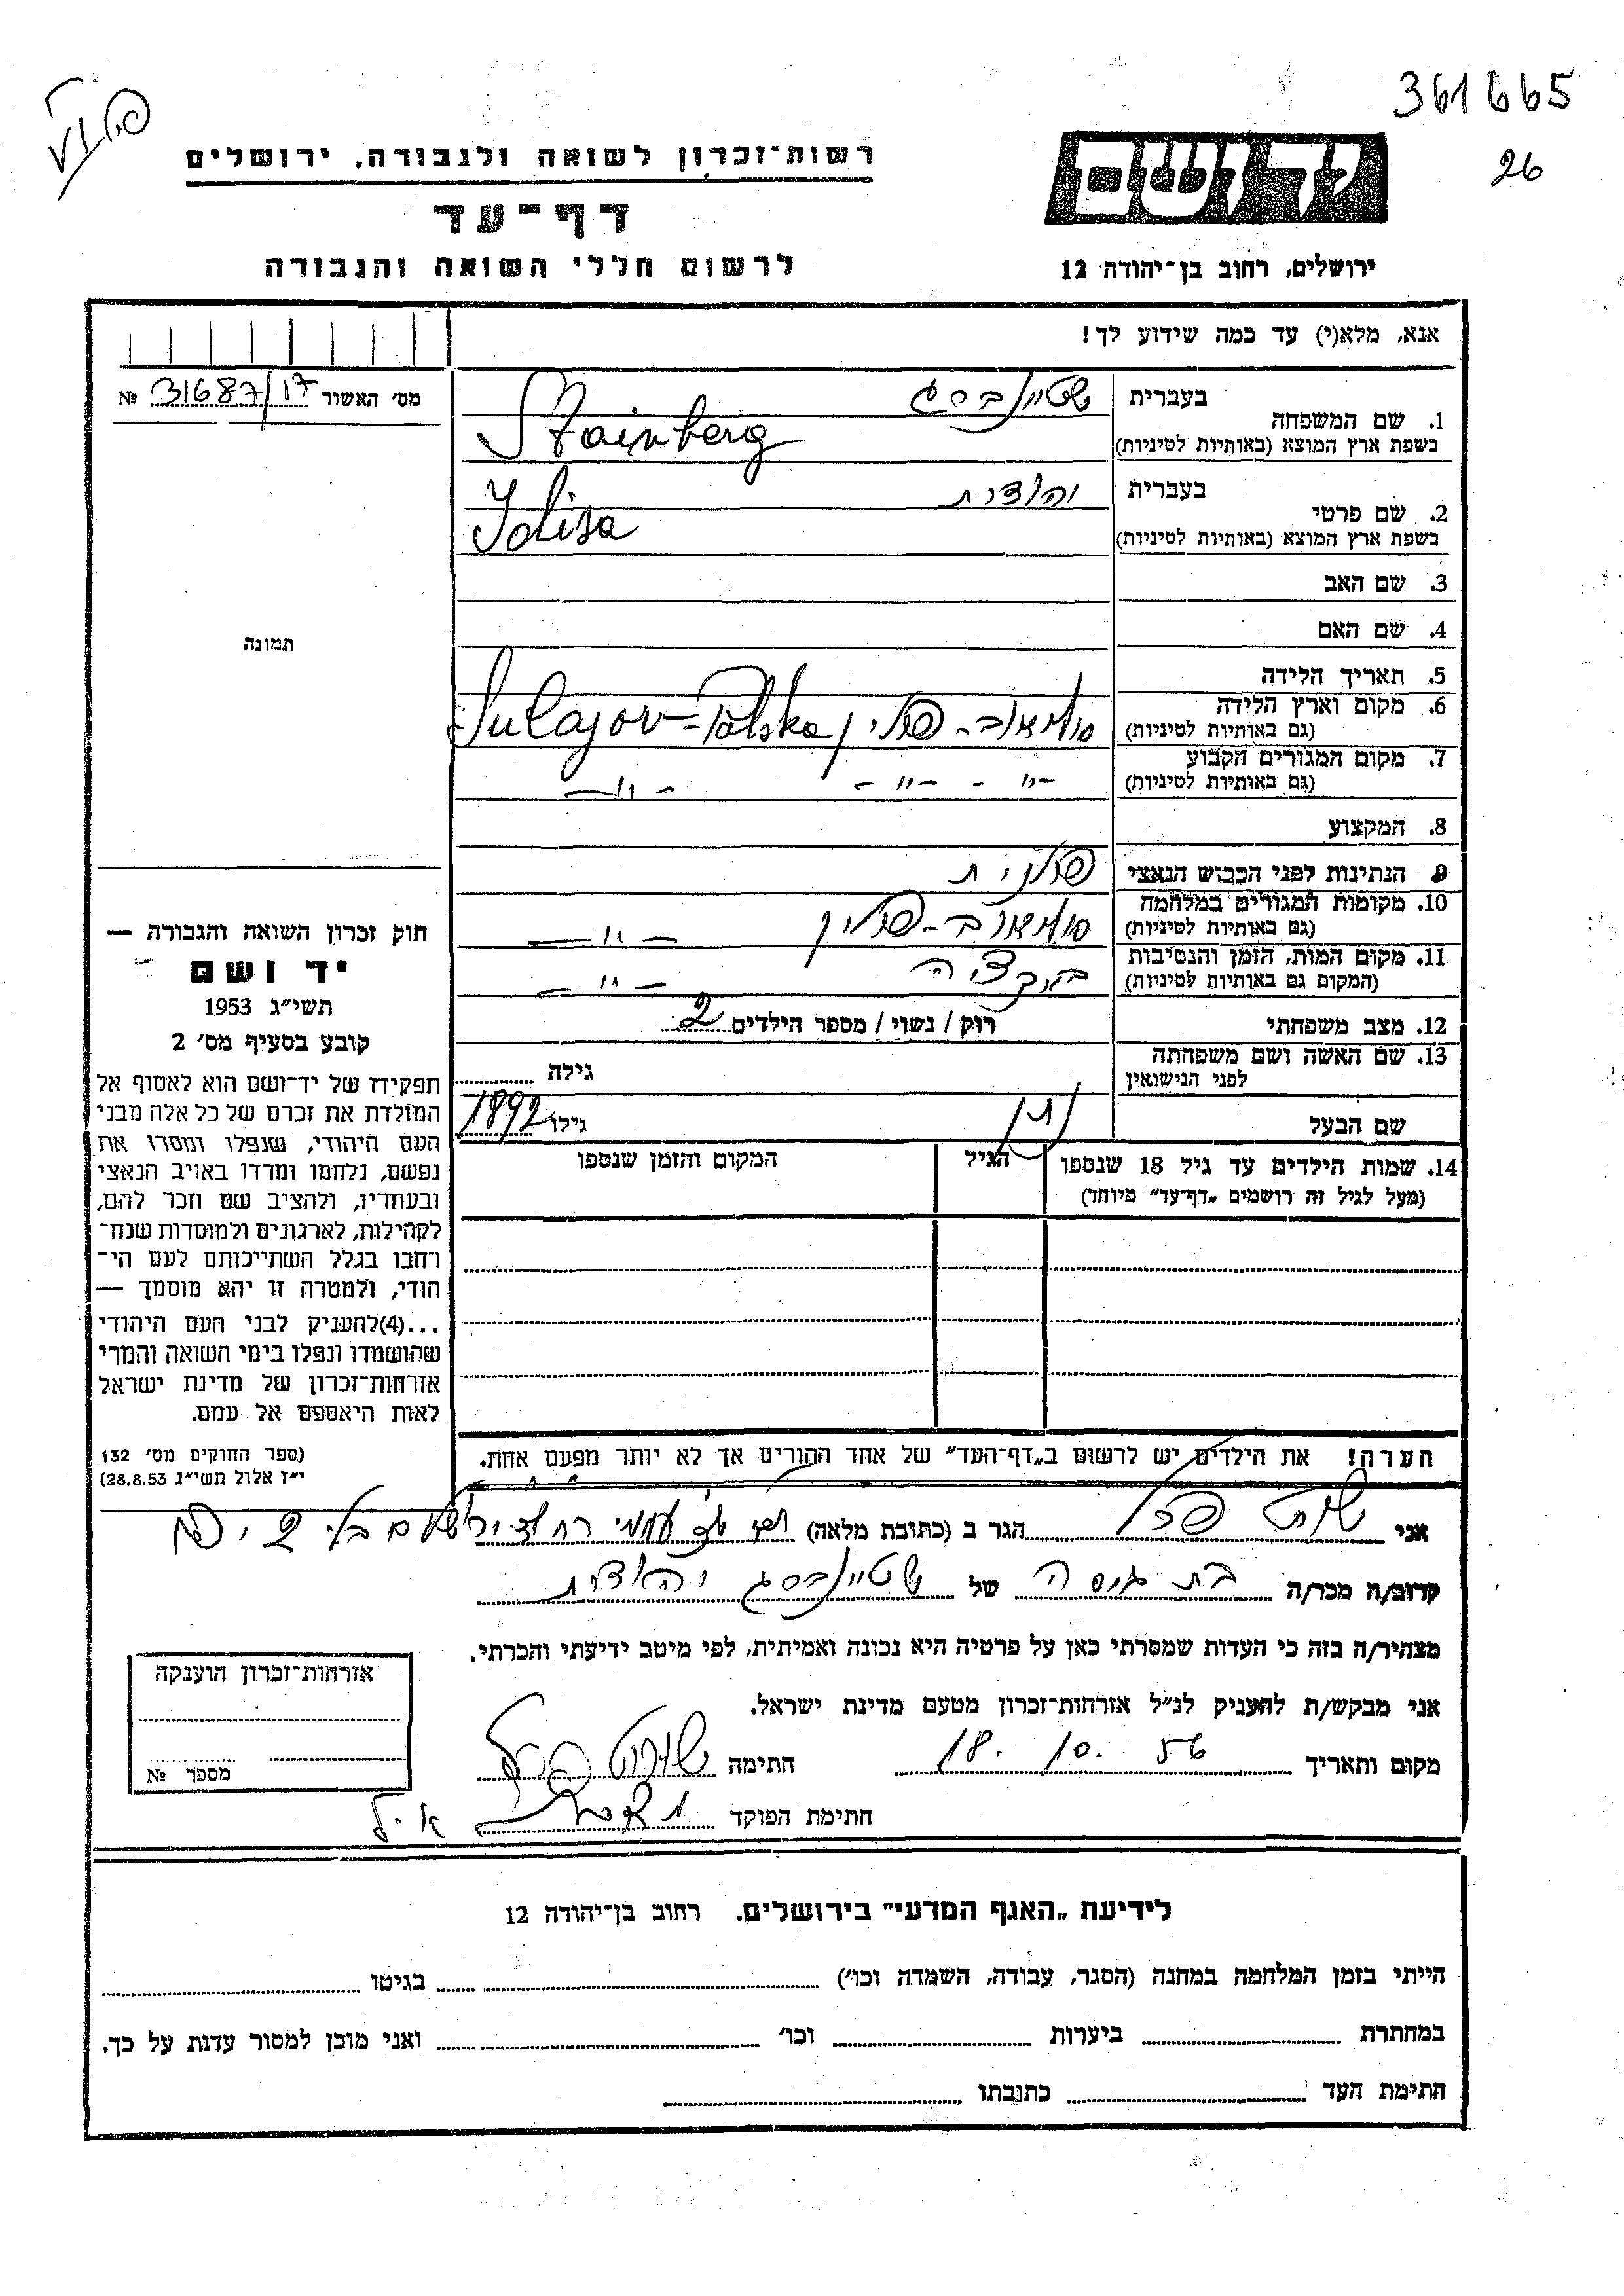 361665
26
רשות־זכרון לשואה ולגבורה, ירושלים
יד ושם
דף־עד
ירושלים, רחוב בן־יהודה 12
לרשום חללי השואה והגבורה
אנא, מלא(י) עד כמה שידוע לך!
מס׳ האשור 31687/17 №
1. שם המשפחה בעברית שטיינברג
בשפת ארץ המוצא (באותיות לטיניות) Stainberg
2. שם פרטי בעברית יהודית
בשפת ארץ המוצא (באותיות לטיניות)
3. שם האב
4. שם האם
תמונה
5. תאריך הלידה
6. מקום וארץ הלידה
(גם באותיות לטיניות) סוליאוב - פולין Sulajov - Polska
7. מקום המגורים הקבוע
(גם באותיות לטיניות) -״- -״- -״-
8. המקצוע
9. הנתינות לפני הכבוש הנאצי פולנית
10. מקומות המגורים במלחמה
(גם באותיות לטיניות) סוליאוב - פולין -״-
11. מקום המות, הזמן והנסיבות
(המקום גם באותיות לטיניות) באקציה -״-
12. מצב משפחתי רוק / נשוי / מספר הילדים 2
13. שם האשה ושם משפחתה
לפני הנישואין גילה
שם הבעל נתן גילו 1892
14. שמות הילדים עד גיל 18 שנספו הגיל המקום והזמן שנספו
(מעל לגיל זה רושמים „דף־עד״ מיוחד)
חוק זכרון השואה והגבורה —
יד ושם
תשי״ג 1953
קובע בסעיף מס׳ 2
תפקידו של יד־ושם הוא לאסוף אל
המולדת את זכרם של כל אלה מבני
העם היהודי, שנפלו ומסרו את
נפשם, נלחמו ומרדו באויב הנאצי
ובעוזריו, ולהציב שם וזכר להם,
לקהילות, לארגונים ולמוסדות שנח־
רחבו בגלל השתייכותם לעם הי־
הודי, ולמטרה זו יהא מוסמך —
...(4)להעניק לבני העם היהודי
שהושמדו ונפלו בימי השואה והמרי
אזרחות־זכרון של מדינת ישראל
לאות היאספם אל עמם.
(ספר החוקים מס׳ 132
י״ז אלול תשי״ג 28.8.53)
הערה! את הילדים יש לרשום ב„דף־העד״ של אחד ההורים אך לא יותר מפעם אחת.
אני הגר ב (כתובת מלאה)
קרוב/ה מכר/ה בת גיסה של שטיינברג יהודית
מצהיר/ה בזה כי העדות שמסרתי כאן על פרטיה היא נכונה ואמיתית, לפי מיטב ידיעתי והכרתי.
אני מבקש/ת להעניק לנ״ל אזרחות־זכרון מטעם מדינת ישראל.
מקום ותאריך 18. 10. 56 חתימה
חתימת הפוקד
אזרחות־זכרון הוענקה
מספר №
לידיעת „האגף המדעי״ בירושלים. רחוב בן־יהודה 12
הייתי בזמן המלחמה במחנה (הסגר, עבודה, השמדה וכו׳) בגיטו
במחתרת ביערות וכו׳ ואני מוכן למסור עדות על כך.
חתימת העד כתובתו